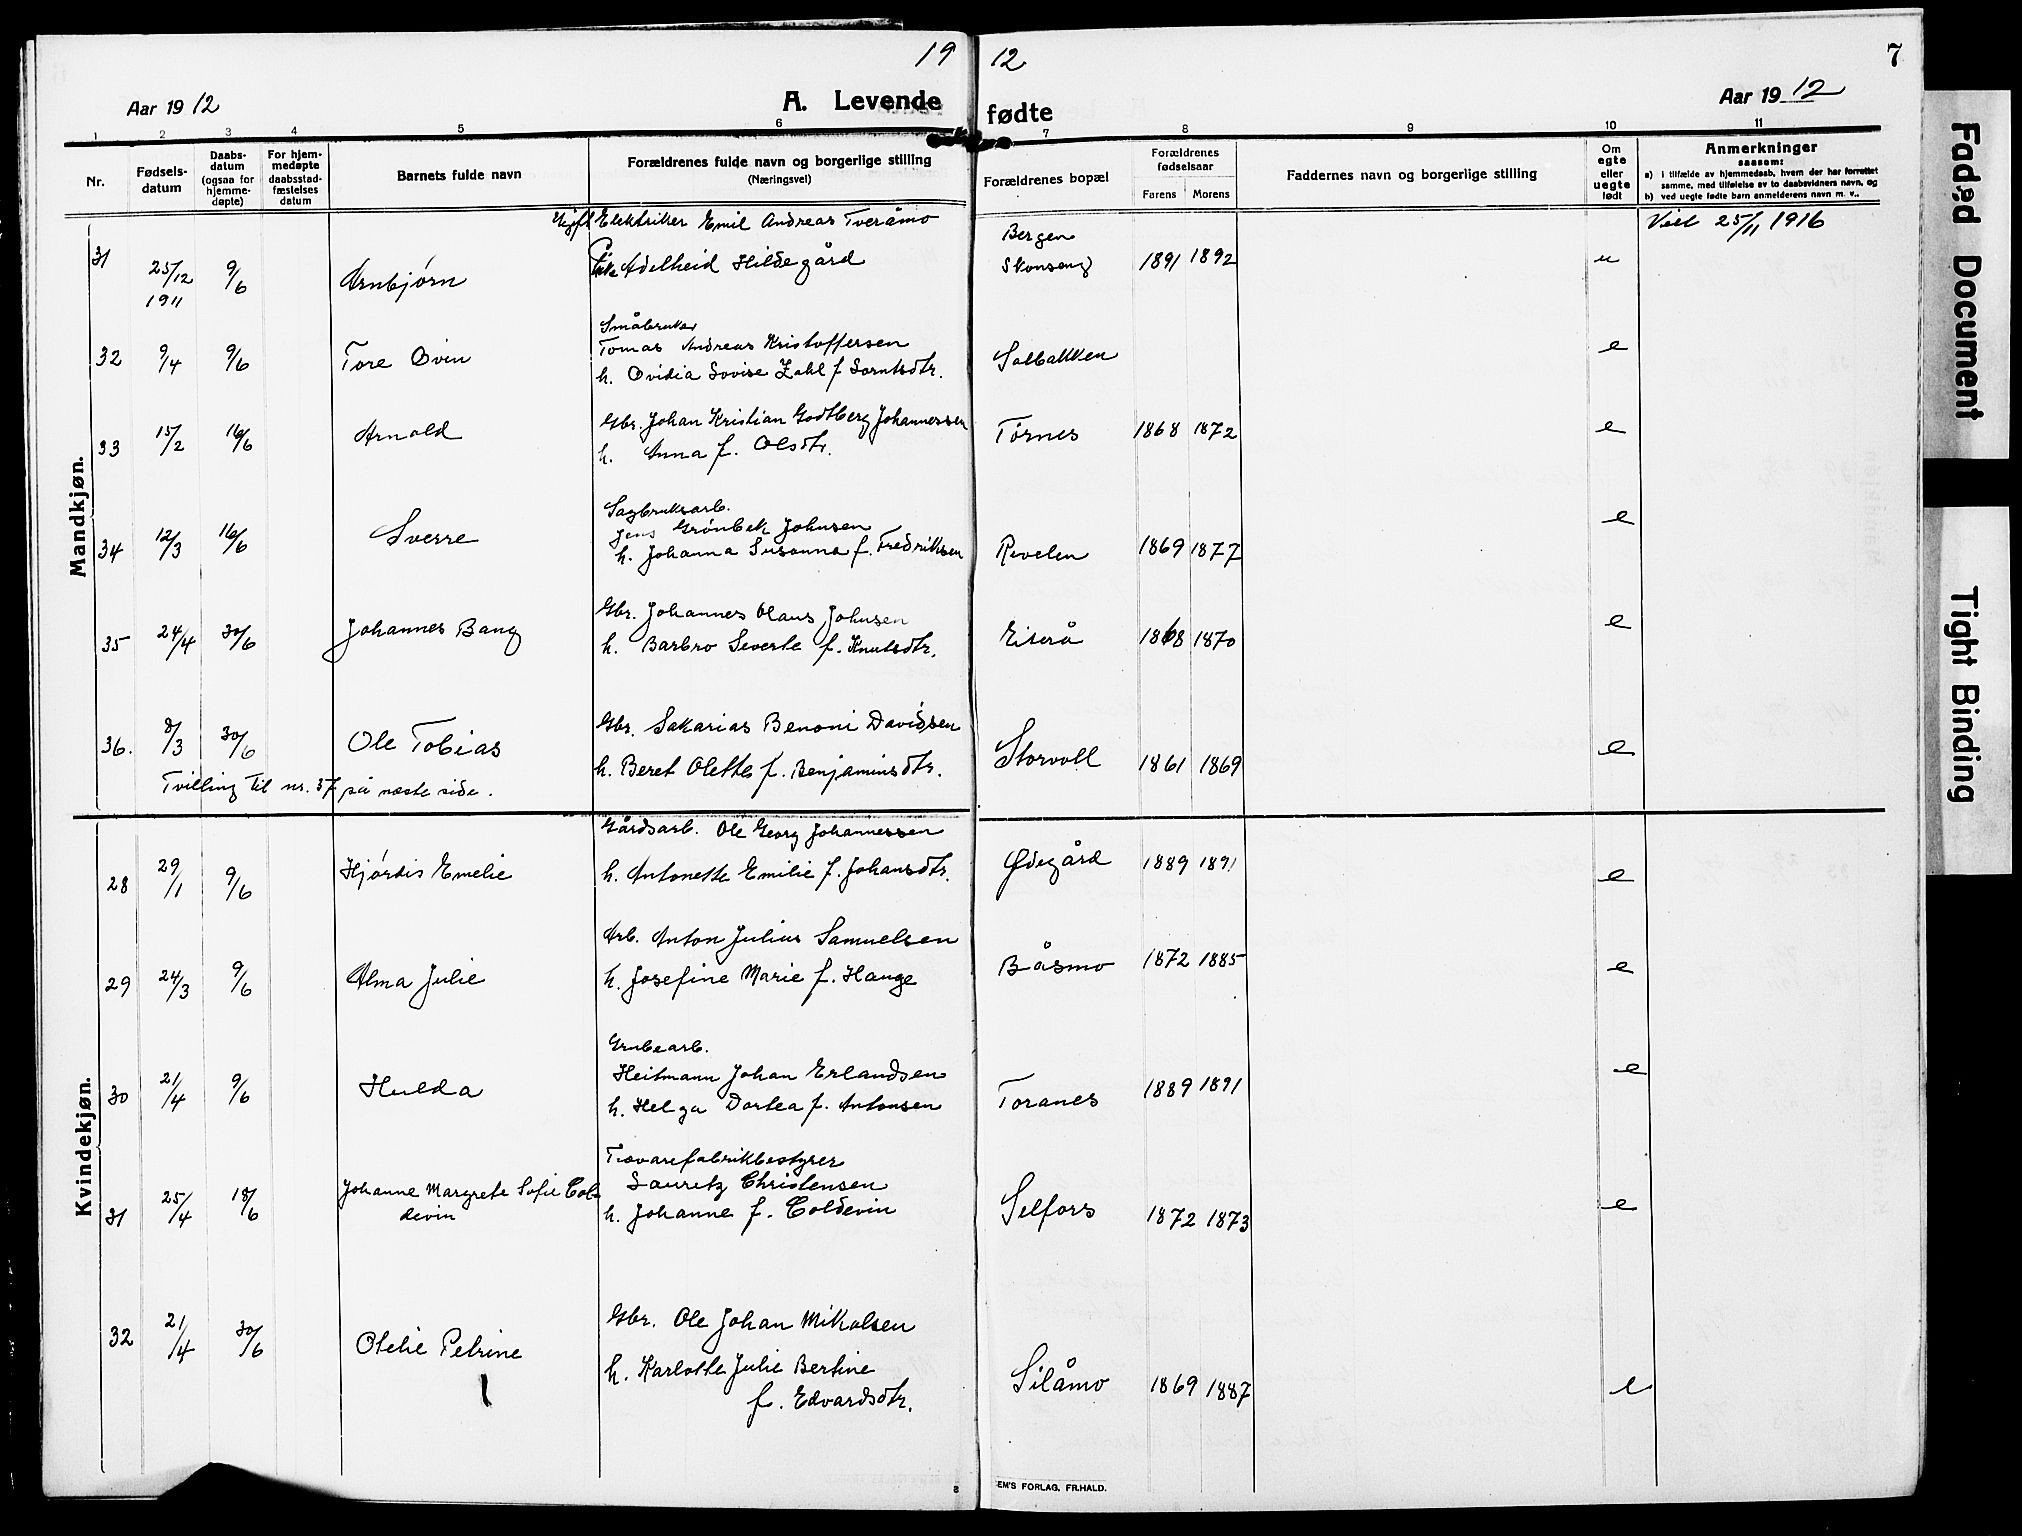 19 12 7
Aar 1912 A. Levende fødte Aar 1912
1 2 3 4 5 6 7 8 9 10 11
Nr. Fødsels-datum Daabs-datum (ogsaa for hjemme-døpte) For hjem-medøpte daabsstad-fæstelses datum Barnets fulde navn Forældrenes fulde navn og borgerlige stilling (Næringsvei) Forældrenes bopæl Forældrenes fødselsaar Farens Morens Faddernes navn og borgerlige stilling Om egte eller uegte født Anmerkninger saasom:
a) i tilfælde av hjemmedaab, hvem der har forrettet samme, med tilføielse av to daabsvidners navn, og
b) ved uegte fødte barn anmelderens navn m. v..
Mandkjøn.
Ugift Elektriker Emil Andreas Tveråmo Bergen Viet 25/11 1916
31 25/12 1911 9/6 Arnbjørn Pike Adelheid Hildegård Skonseng 1891 1892 u
Småbruker
32 9/4 9/6 Tore Ovin Tomas Andreas Kristoffersen Solbakken e
h. Ovidia Lovise Zahl f. Lorntsdtr.
33 15/2 16/6 Arnold Gbr. Johan Kristian Godtberg Johannessen Törnes 1868 1872 e
h. Anna f. Olsdtr.
Sagbruksarb.
34 12/3 16/6 Sverre Jens Grönbek Johnsen Revelen 1869 1877 e
h. Johanna Susanna f. Fredriksen
35 24/4 30/6 Johannes Bang Gbr. Johannes Olaus Johnsen Eiterå 1868 1870 e
h. Barbro Severte f. Knutsdtr.
36. 8/3 30/6 Ole Tobias Gbr. Sakarias Benoni Davidsen Storvoll 1861 1869 e
h. Beret Olette f. Benjaminsdtr.
Tvilling til nr. 37 på næste side.
Kvindekjøn.
28 29/1 9/6 Hjørdis Emelie Gårdsarb. Ole Georg Johannessen Ødegård 1889 1891 e
h. Antonette Emilie f. Johansdtr.
29 24/3 9/6 Alma Julie Arb. Anton Julius Samuelsen Båsmo 1872 1885 e
h. Josefine Marie f. Hauge
Grubearb.
30 21/4 9/6 Hulda Heitmann Johan Erlandsen Toranes 1889 1891 e
h. Helga Dortea f. Antonsen
Trævarefabrikbestyrer
31 25/4 18/6 Johanne Margrete Sofie Coldevin Lauretz Christensen Selfors 1872 1873 e
h. Johanne f. Coldevin
32 21/4 30/6 Otelie Petrine Gbr. Ole Johan Mikalsen Silåmo 1869 1887 e
h. Karlotte Julie Bertine
f. Edvardsdtr.
8
EM'S FORLAG, FR.HALD.
Faded Document
Tight Binding